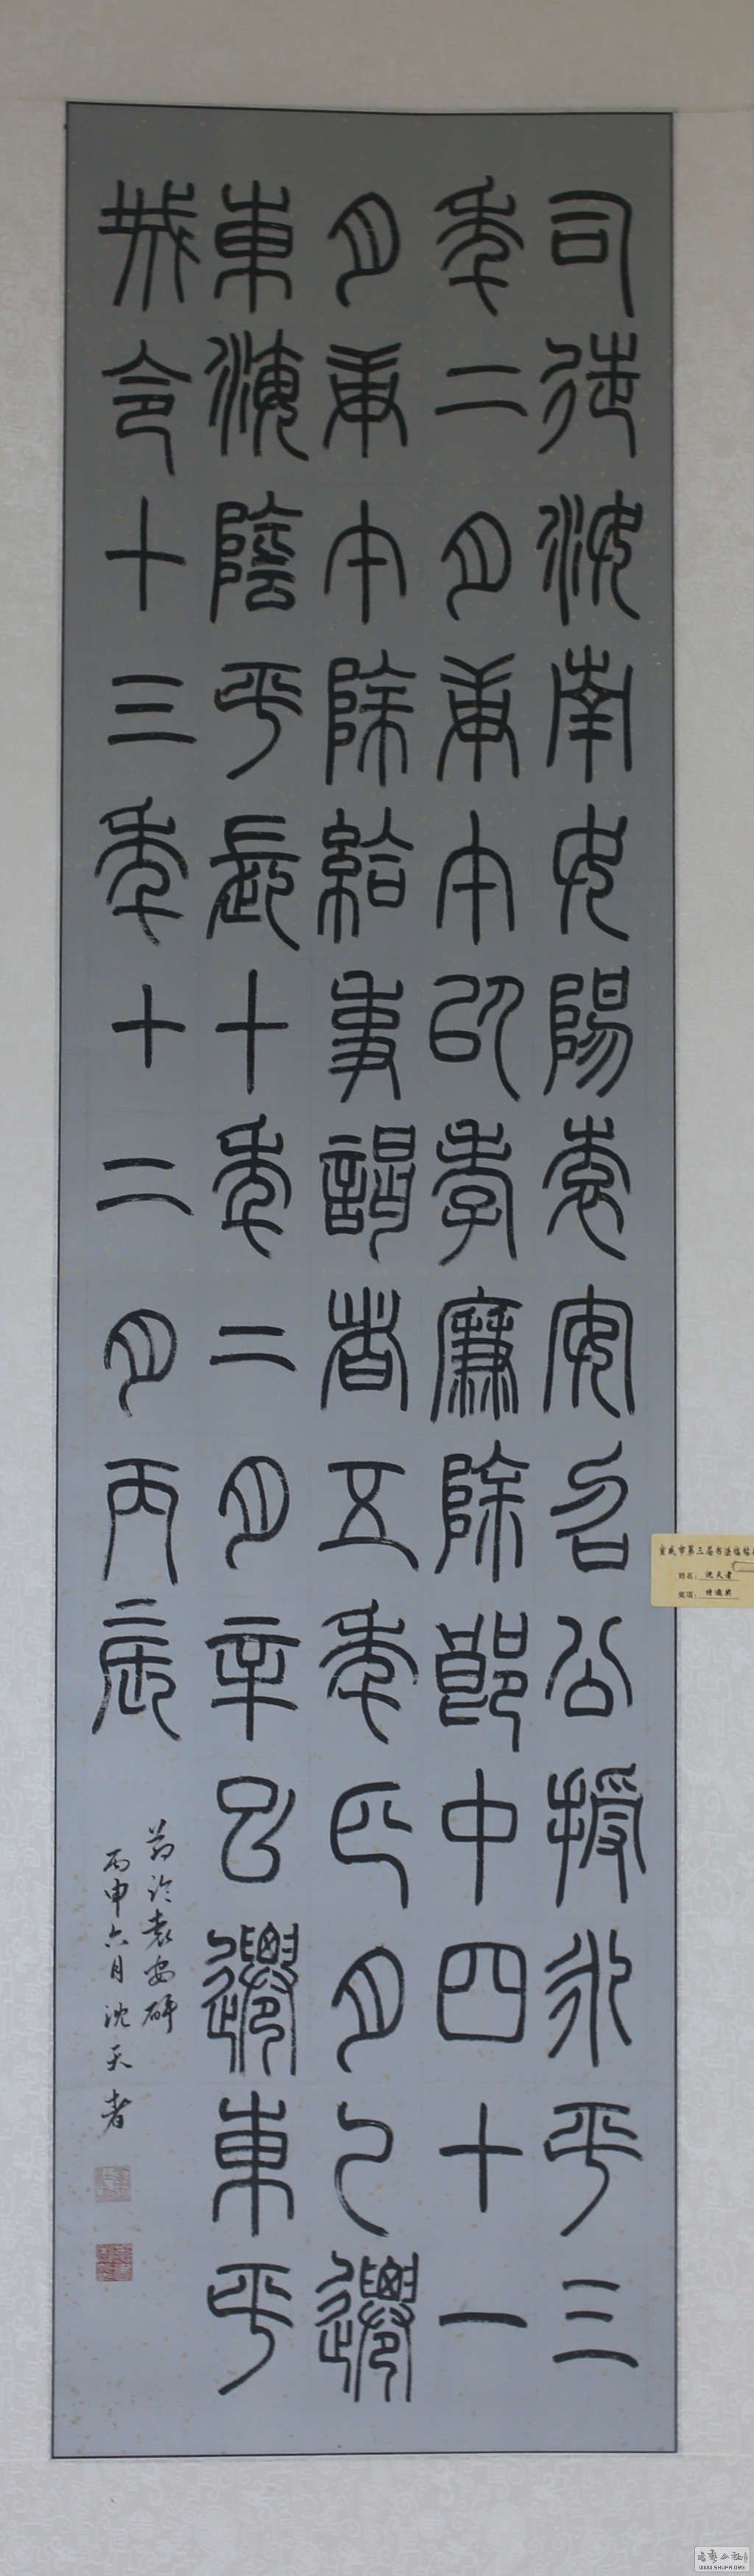 司徒汝南女陽袁安召公授永平三
年二月庚午以孝廉除郎中四十一
月庚午除給事謁者五年正月乙遷
東海陰平長十年二月辛巳遷東平
城令十三年十二月丙辰
節临袁安碑
丙申六月沈天者
宣威市第三届书法临帖
姓名：沈天者
奖项：特邀奖
书艺公社
WWW.SHUFA.ORG